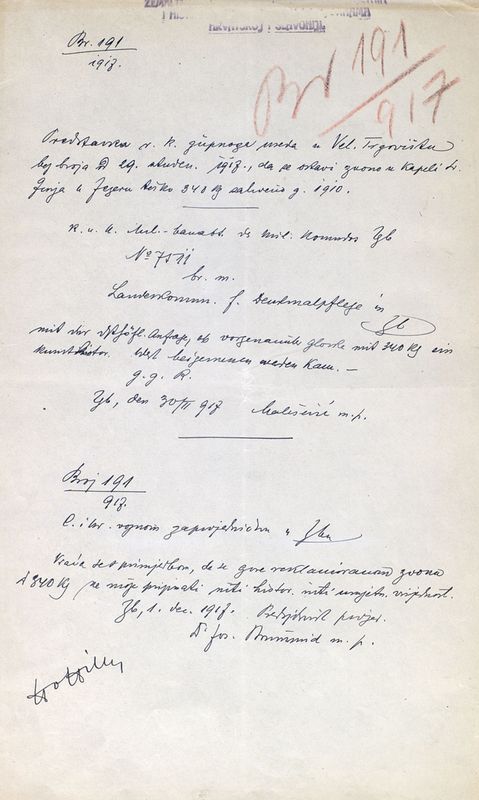 HRVATSKOJ I SLAVONIJI.
Br. 191
1917.
Br 191
917
Predstavka r. k. župnoga ureda u Vel. Trgovištu
broja D 29. studen. 1917., da se ostavi zvono u kapeli sv.
Jurja u Jezeru teško 340 kg saliveno g. 1910.
K. u. k. Mil. des Mil. Komdos Zgb
No 7511
br. m.
Landeskomm. f. Denkmalpflege in
Zgb
mit der Anfrage, ob vorgenannte Glocke mit 340 kg ein
kunsthistor. Wert beigemessen werden kann. —
g. g. R.
Zgb, den 30/11 917 m. p.
Broj 191
917.
C. i kr. vojnom zapovjedničtvu u Zgbu
Vraća se s primjetbom, da se gore reklamiranom zvonu
od 340 kg ne može pripisati niti histor. niti umjetn. vrijednost.
Zgb, 1. dec. 1917. Predsjednik povjer.
Dr. Jos. Brunšmid m. p.